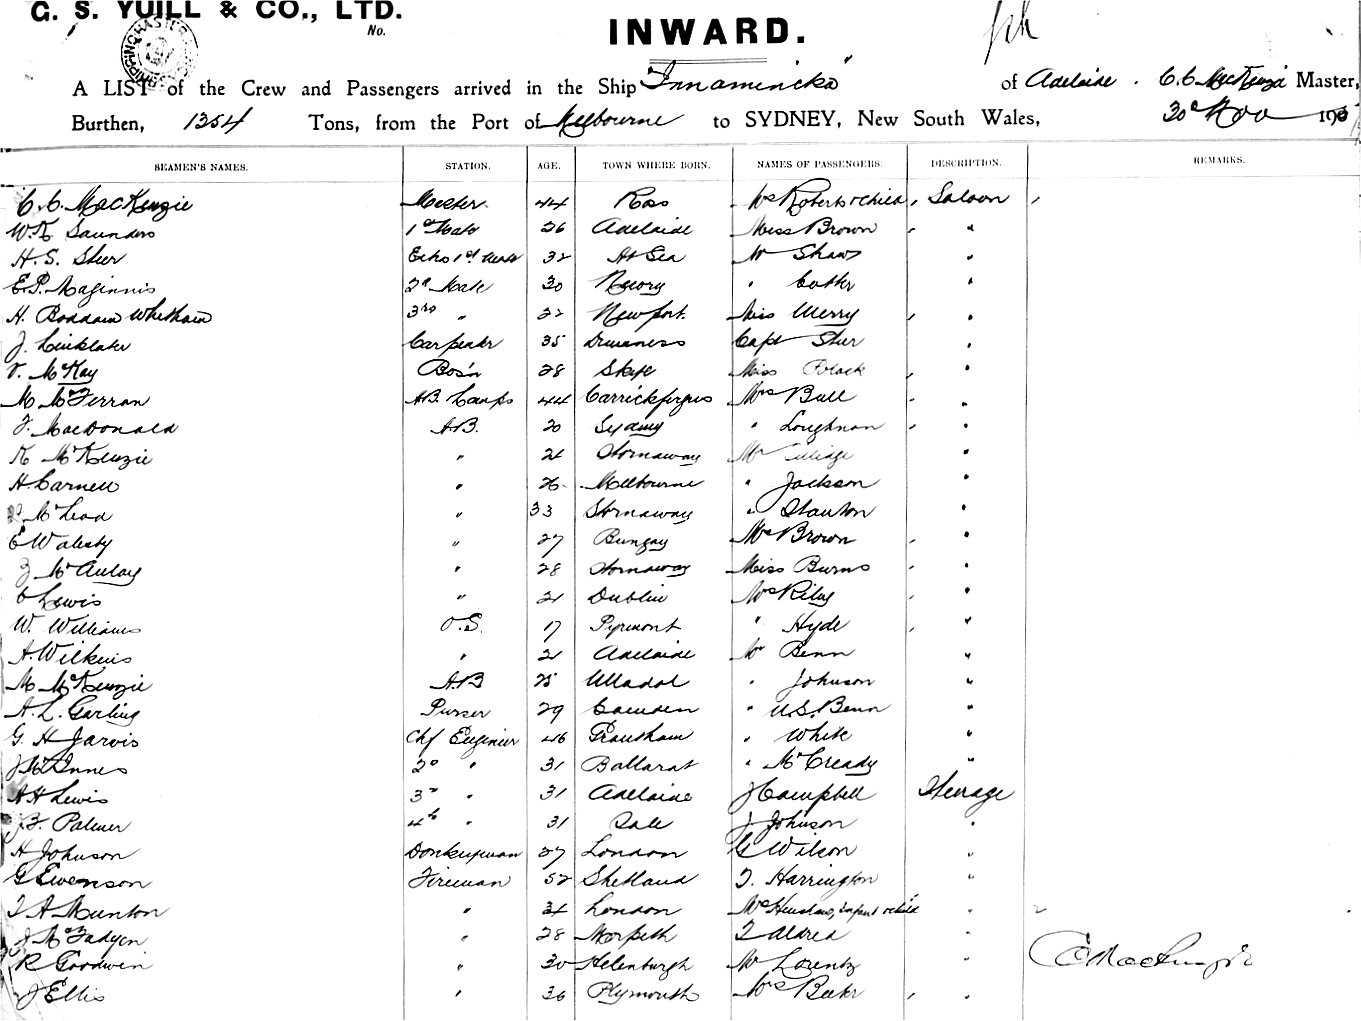 G. S. YUILL & CO., LTD.
No.
INWARD.
A LIST of the Crew and Passengers arrived in the Ship "Innamincka" of Adelaide. C.C. MacKenzie Master,
Burthen, 1354 Tons, from the Port of Melbourne to SYDNEY, New South Wales, 30 Nov 190
SEAMEN'S NAMES. STATION. AGE. TOWN WHERE BORN. NAMES OF PASSENGERS. DESCRIPTION. REMARKS.
C. C. MacKenzie Master 44 Ross Mrs Roberts & child Saloon
W. K Saunders 1st Mate 26 Adelaide Miss Brown "
H. S. Sheer 1st Mate 32 At Sea Mr Shaw "
E. P. Maginnis 2d Mate 30 Newry " "
H. Boddam Whetham 3rd " 22 Newport Miss Merry "
J. Linklater Carpenter 35 Capt Sheer "
McKay Bos'n 28 Skye Miss Black "
M McFerran AB. Lamps 44 Carrickfergus Mrs Bull "
J. MacDonald A.B. 20 Sydney " Loughnan "
K McKenzie " 21 Stornaway Mr "
H Carnell " 26 Melbourne " Jackson "
McLeod " 33 Stornaway " Stanton "
E Walesby " 27 Bungay Mrs Brown "
McAulay " 28 Stornaway Miss Burns "
C Lewis " 21 Dublin Mrs Riley "
W. Williams O.S. 17 Pyrmont " Hyde "
A. Wilkins " 21 Adelaide Mr Benn "
M McKenzie A.B 25 Ulladol " Johnson "
A. L. Garling Purser 29 Camden " U.S. Benn "
G. H Jarvis Chf Engineer 46 Grantham " White "
J McInnes 2d " 31 Ballarat " McCready "
A H Lewis 3rd " 31 Adelaide J Campbell Steerage
J. F. Palmer 4th " 31 Sale J Johnson "
H Johnson Donkeyman 27 London G Wilson "
G Evenson Fireman 52 Shetland T. Harrington "
T A Munton " 34 London Mrs Henshaw, infant & child "
J McFadyen " 28 Morpeth T Aldred "
R Goodwin " 30 Helenburgh Mr Lorentz " C C MacKenzie
J Ellis " 36 Plymouth Mrs Baker "